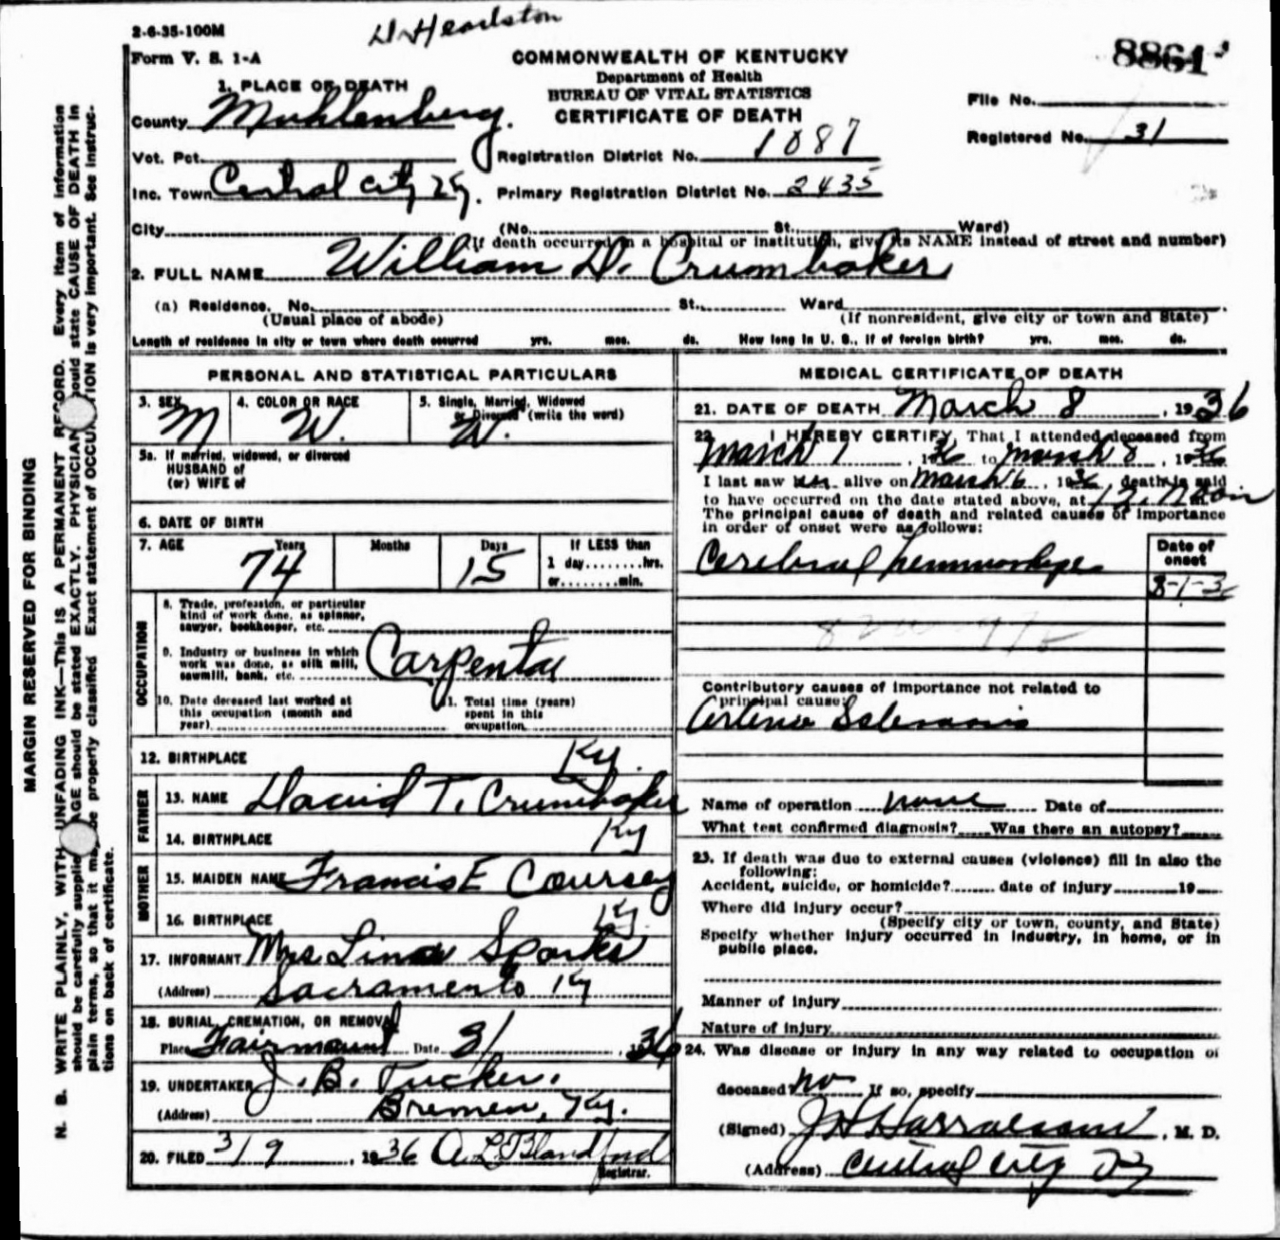 2-6-35-100M
Form V. S. 1-A
COMMONWEALTH OF KENTUCKY
Department of Health
BUREAU OF VITAL STATISTICS
CERTIFICATE OF DEATH
8861
File No.
Registered No. 31
1. PLACE OF DEATH
County Muhlenberg.
Vot. Pct.
Registration District No. 1087
Inc. Town Central City Ky.
Primary Registration District No. 2435
City (No. St. Ward)
(If death occurred in a hospital or institution, give its NAME instead of street and number)
2. FULL NAME William D. Crumbaker
(a) Residence, No. St. Ward
(Usual place of abode) (If nonresident, give city or town and State)
Length of residence in city or town where death occurred yrs. mos. ds. How long in U. S., if of foreign birth? yrs. mos. ds.
PERSONAL AND STATISTICAL PARTICULARS
3. SEX M
4. COLOR OR RACE W.
5. Single, Married, Widowed
or Divorced (write the word)
W.
5a. If married, widowed, or divorced
HUSBAND of
(or) WIFE of
6. DATE OF BIRTH
7. AGE Years Months Days If LESS than
74 15 1 day........hrs.
or........min.
OCCUPATION
8. Trade, profession, or particular
kind of work done, as spinner,
sawyer, bookkeeper, etc.
9. Industry or business in which
work was done, as silk mill,
sawmill, bank, etc.
Carpenter
10. Date deceased last worked at
this occupation (month and
year)
11. Total time (years)
spent in this
occupation
12. BIRTHPLACE Ky.
FATHER
13. NAME David T. Crumbaker
14. BIRTHPLACE Ky
MOTHER
15. MAIDEN NAME Francis E Coursey
16. BIRTHPLACE Ky.
17. INFORMANT Mrs Lina Sparks
(Address) Sacramento Ky
18. BURIAL, CREMATION, OR REMOVAL
Place Fairmount Date 3/ , 1936
19. UNDERTAKER J. B. Tucker.
(Address) Bremen, Ky.
20. FILED 3/9, 1936 A L Blandford
Registrar.
MEDICAL CERTIFICATE OF DEATH
21. DATE OF DEATH March 8, 1936
22. I HEREBY CERTIFY, That I attended deceased from
March 1, 1936 to March 8, 1936
I last saw him alive on March 6, 1936, death is said
to have occurred on the date stated above, at 12. Noon
The principal cause of death and related causes of importance
in order of onset were as follows:
Date of
onset
Cerebral hemmorhage
3-1-36
Contributory causes of importance not related to
principal cause:
Name of operation none Date of
What test confirmed diagnosis? Was there an autopsy?
23. If death was due to external causes (violence) fill in also the
following:
Accident, suicide, or homicide? date of injury 19
Where did injury occur?
(Specify city or town, county, and State)
Specify whether injury occurred in industry, in home, or in
public place.
Manner of injury
Nature of injury
24. Was disease or injury in any way related to occupation of
deceased no If so, specify
(Signed) J H Harralson, M. D.
(Address) Central City Ky
MARGIN RESERVED FOR BINDING
N. B. WRITE PLAINLY, WITH UNFADING INK—This IS A PERMANENT RECORD. Every item of information
should be carefully supplied. AGE should be stated EXACTLY. PHYSICIANS should state CAUSE OF DEATH in
plain terms, so that it may be properly classified. Exact statement of OCCUPATION is very important. See instruc-
tions on back of certificate.